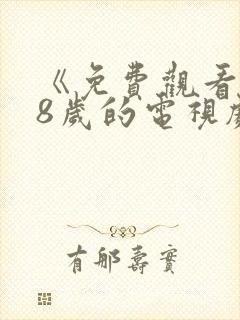 《免費觀看
8歲的電視劇
有那壽實